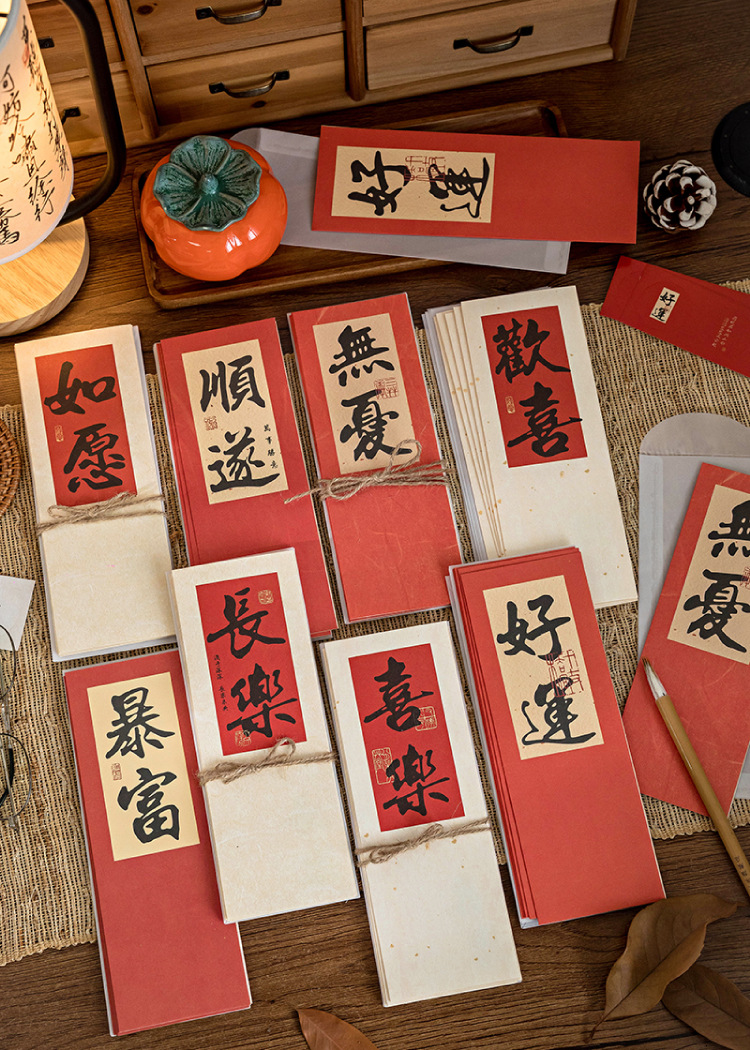 好運
好運
如
愿
順
遂
萬事勝意
無
憂
歡
喜
無
憂
長
樂
喜
樂
好
運
暴
富